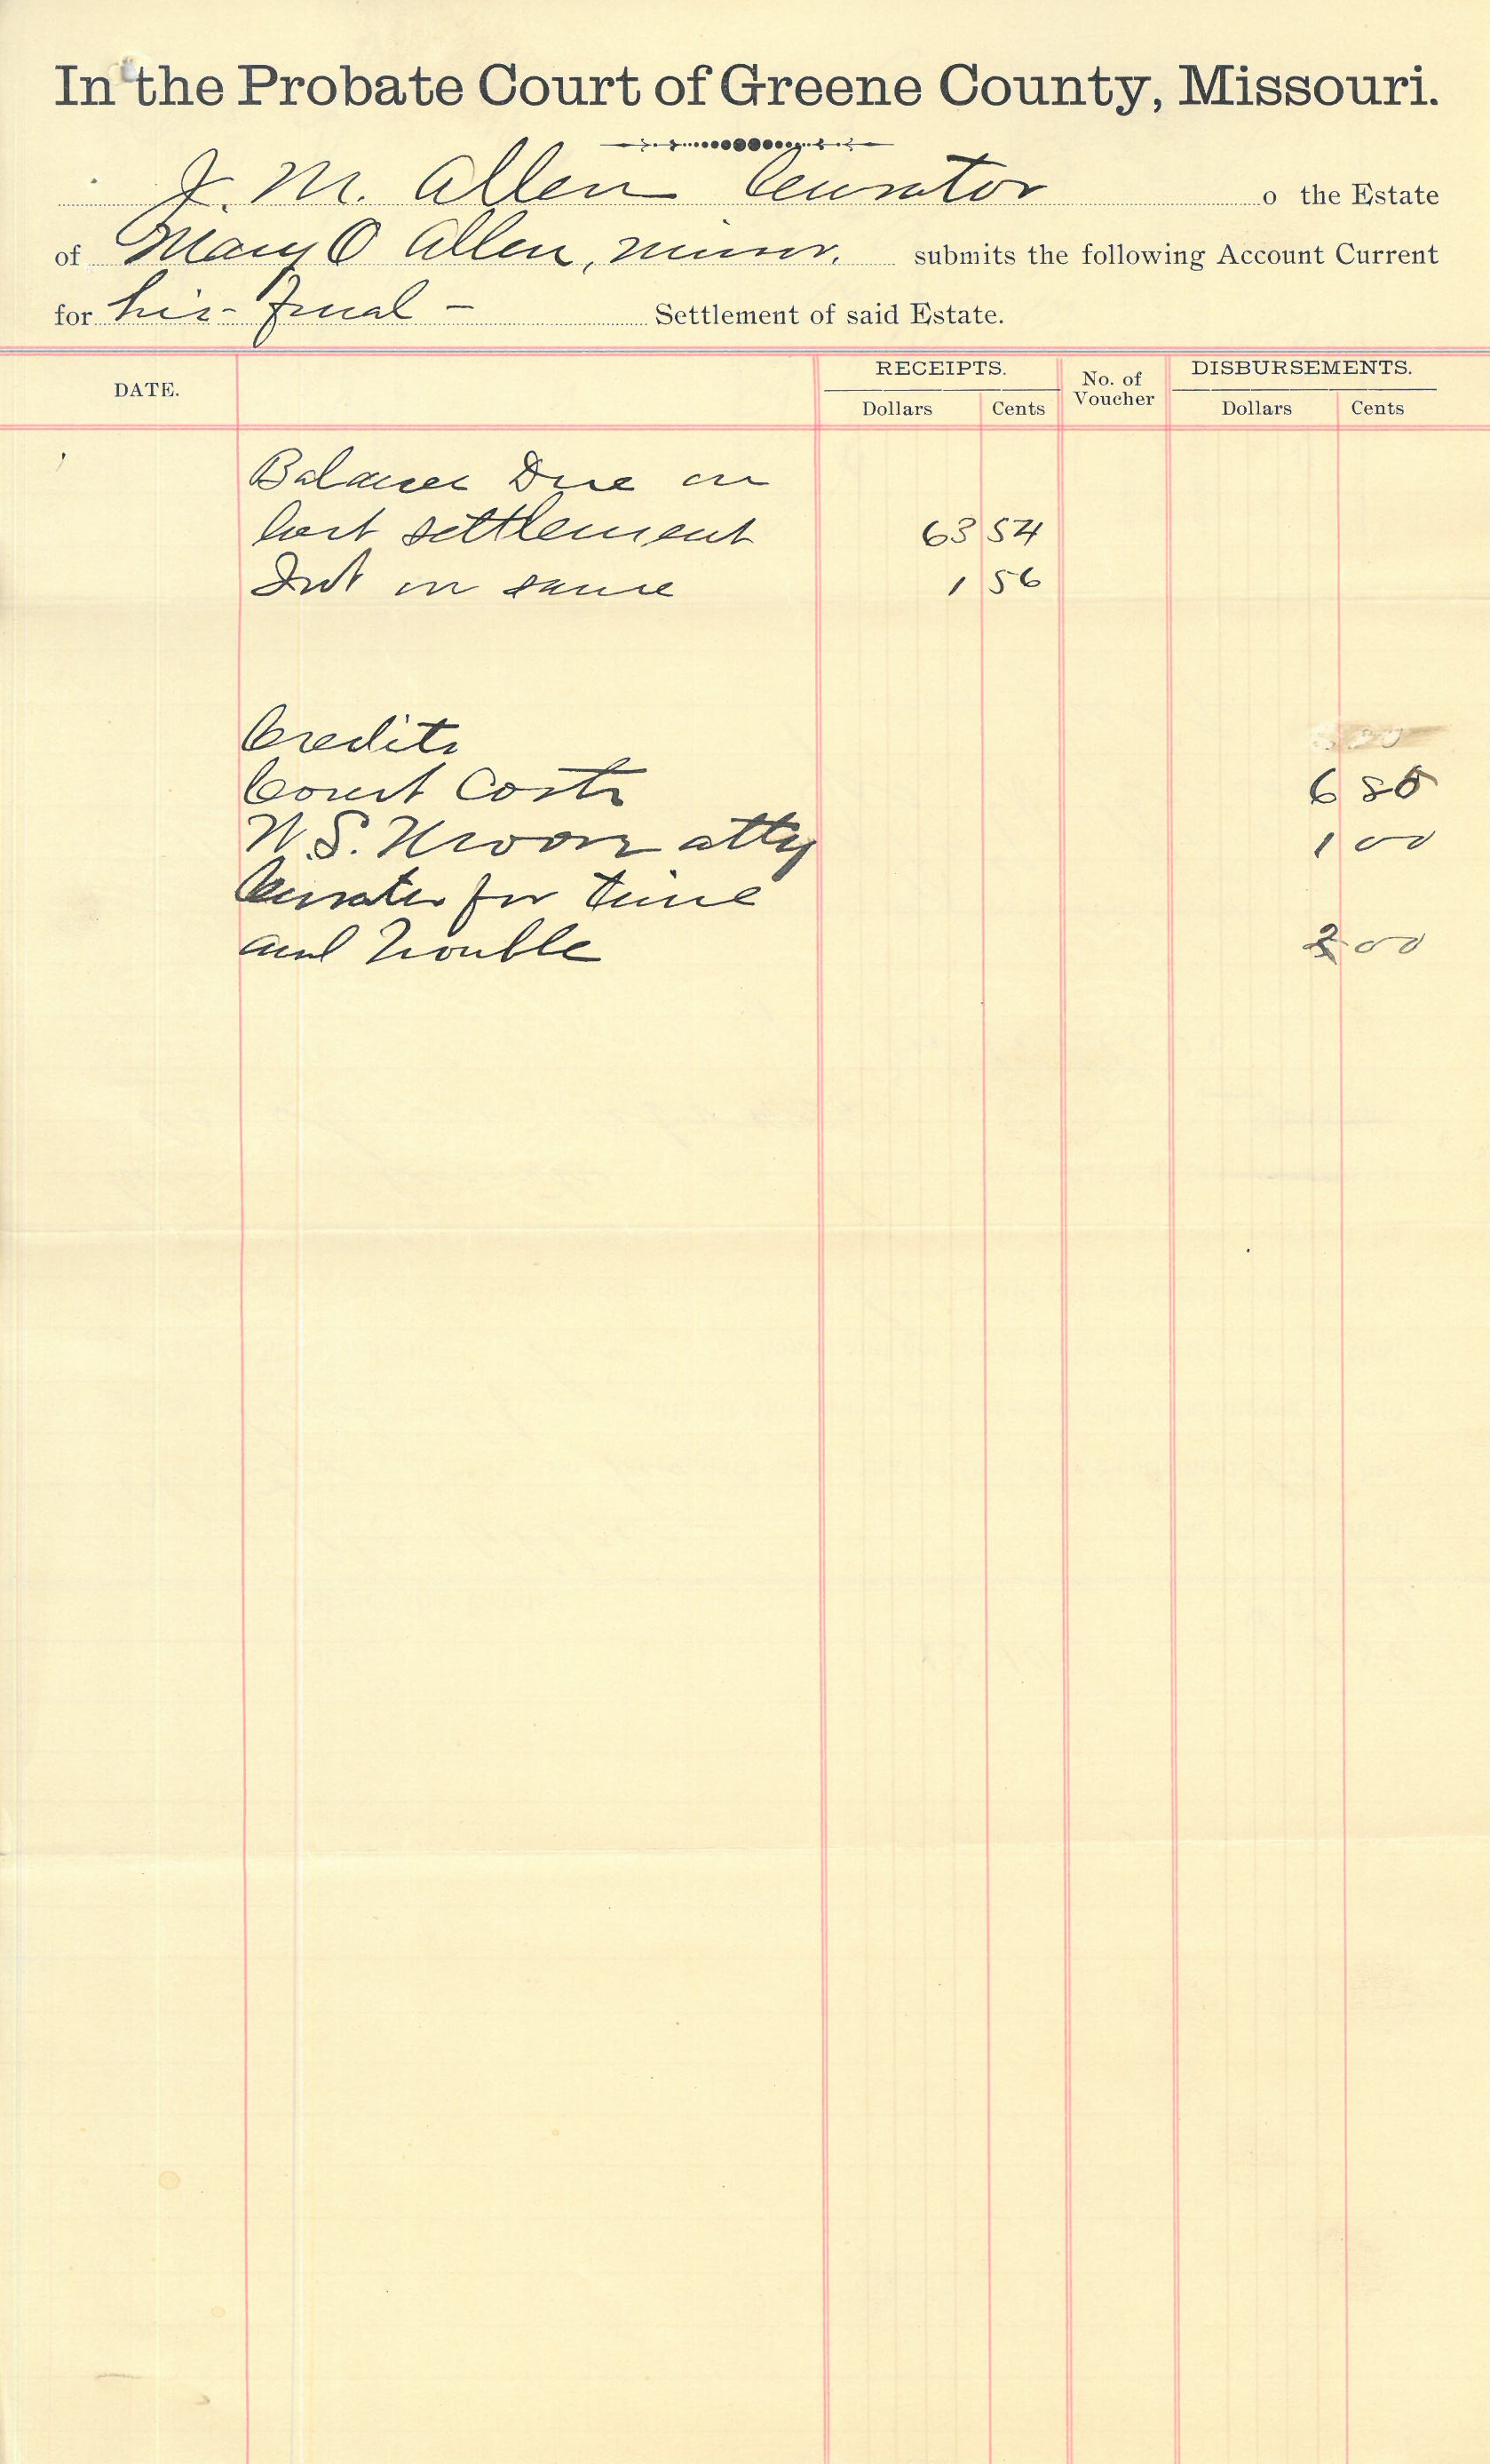 In the Probate Court of Greene County, Missouri.
J. M. Allen Curator o the Estate
of Mary O Allen, minor. submits the following Account Current
for his - final - Settlement of said Estate.
DATE. RECEIPTS. No. of Voucher DISBURSEMENTS.
Dollars Cents Dollars Cents
Balance Due on
last settlement 63 54
Int on same 1 56
Credits
Court Costs 6
W. S. atty 1 00
Curator for time
and Trouble 00